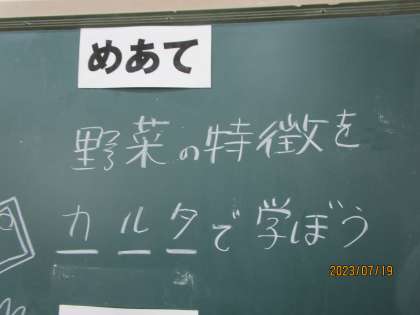 めあて
野菜の特徴を
カルタで学ぼう
2023/07/19